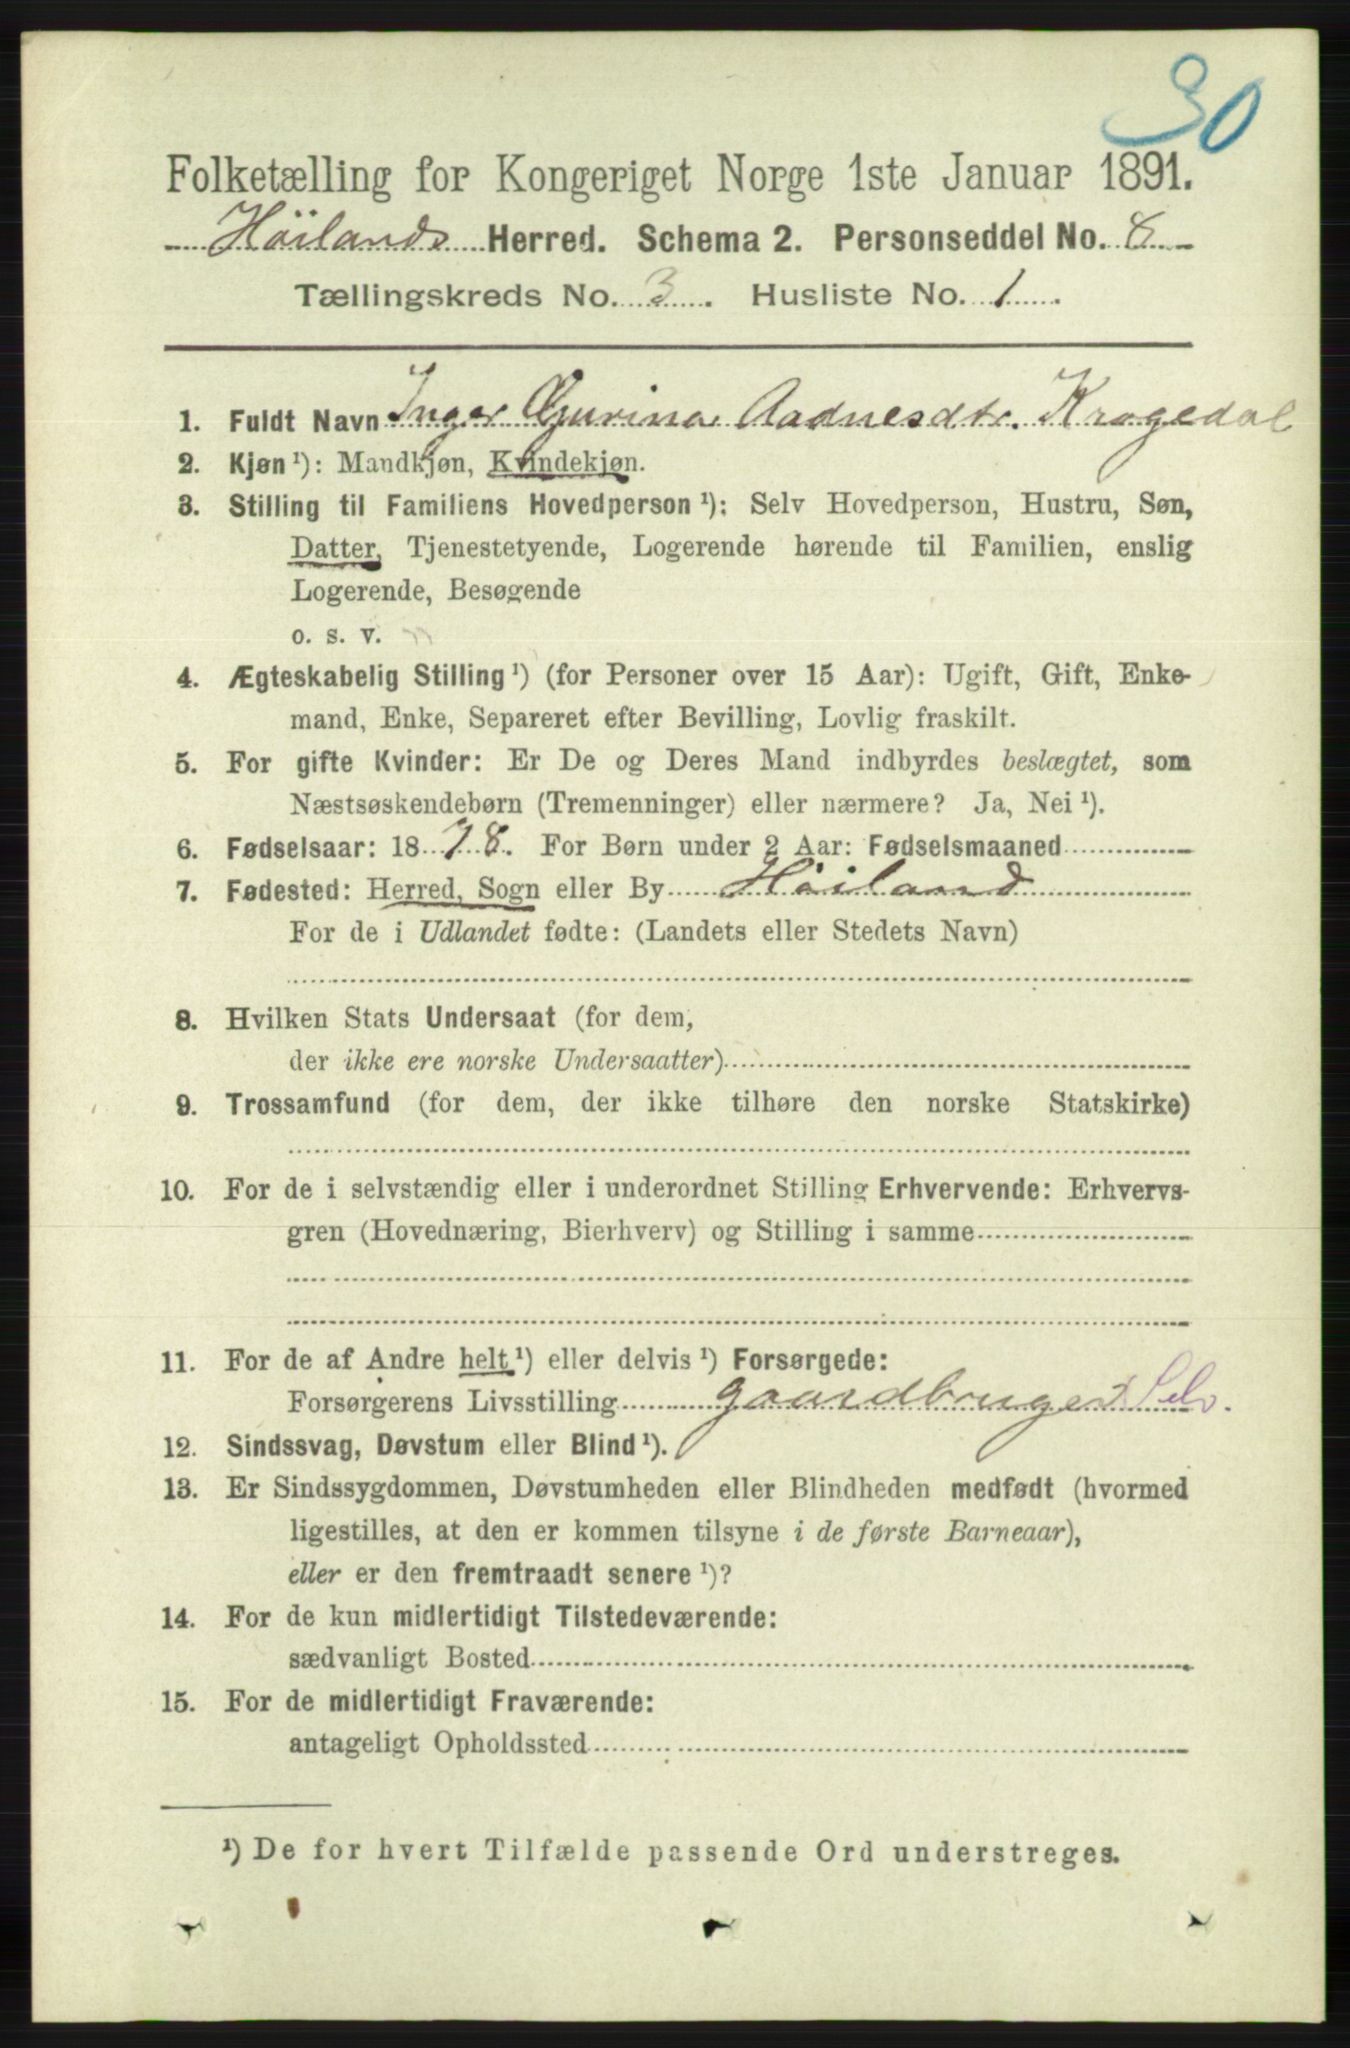 30
Folketælling for Kongeriget Norge 1ste Januar 1891.
Höilands Herred. Schema 2. Personseddel No. 8
Tællingskreds No. 3. Husliste No. 1.
1. Fuldt Navn Inger Gjurina Aadnesdtr. Kragedal
2. Kjøn ¹): Mandkjøn, Kvindekjøn.
3. Stilling til Familiens Hovedperson ¹): Selv Hovedperson, Hustru, Søn,
Datter, Tjenestetyende, Logerende hørende til Familien, enslig
Logerende, Besøgende
o. s. v.
4. Ægteskabelig Stilling ¹) (for Personer over 15 Aar): Ugift, Gift, Enke-
mand, Enke, Separeret efter Bevilling, Lovlig fraskilt.
5. For gifte Kvinder: Er De og Deres Mand indbyrdes beslægtet, som
Næstsøskendebørn (Tremenninger) eller nærmere? Ja, Nei ¹).
6. Fødselsaar: 1878. For Børn under 2 Aar: Fødselsmaaned
7. Fødested: Herred, Sogn eller By Höiland
For de i Udlandet fødte: (Landets eller Stedets Navn)
8. Hvilken Stats Undersaat (for dem,
der ikke ere norske Undersaatter)
9. Trossamfund (for dem, der ikke tilhøre den norske Statskirke)
10. For de i selvstændig eller i underordnet Stilling Erhvervende: Erhvervs-
gren (Hovednæring, Bierhverv) og Stilling i samme
11. For de af Andre helt ¹) eller delvis ¹) Forsørgede:
Forsørgerens Livsstilling gaardbruger Selv.
12. Sindssvag, Døvstum eller Blind ¹).
13. Er Sindssygdommen, Døvstumheden eller Blindheden medfødt (hvormed
ligestilles, at den er kommen tilsyne i de første Barneaar),
eller er den fremtraadt senere ¹)?
14. For de kun midlertidigt Tilstedeværende:
sædvanligt Bosted
15. For de midlertidigt Fraværende:
antageligt Opholdssted
¹) De for hvert Tilfælde passende Ord understreges.